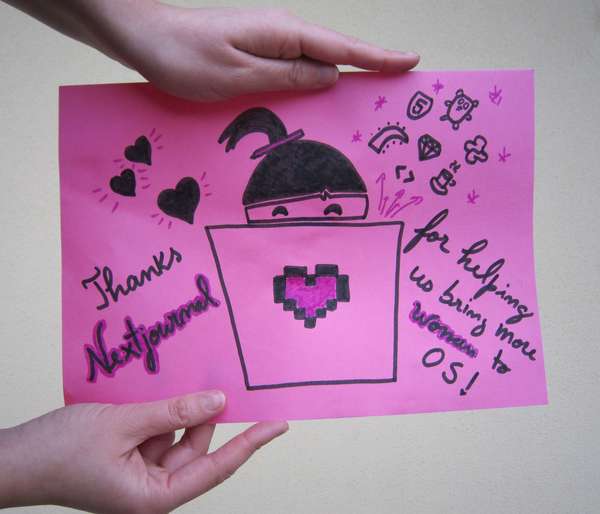 Thanks
Nextjournal
5
< >
for helping
us bring more
women to
OS!